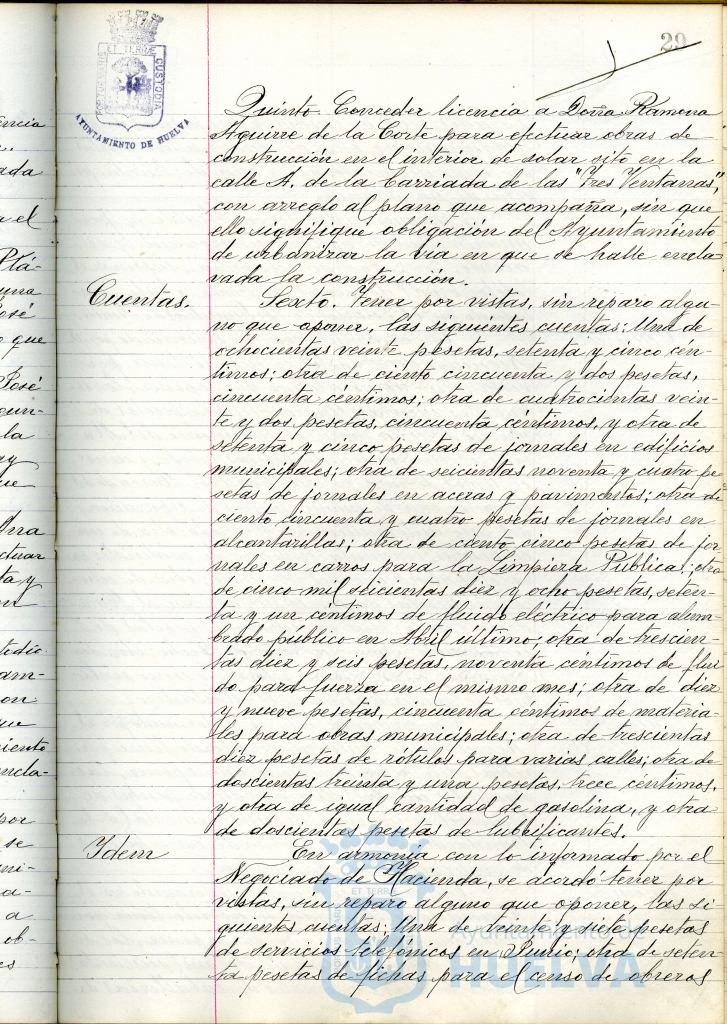 29
PORTUS MARIS
ET TERRÆ
CUSTODIA
AYUNTAMIENTO DE HUELVA
Quinto. Conceder licencia a Doña Ramona
Aguirre de la Corte para efectuar obras de
construcción en el interior de solar sito en la
calle A. de la barriada de las "Tres Ventanas",
con arreglo al plano que acompaña, sin que
ello signifique obligación del Ayuntamiento
de urbanizar la vía en que se halle encla-
vada la construcción.
Cuentas.
Sexto. Tener por vistas, sin reparo algu-
no que oponer, las siguientes cuentas: Una de
ochocientas veinte pesetas, setenta y cinco cén-
timos; otra de ciento cincuenta y dos pesetas,
cincuenta céntimos; otra de cuatrocientas vein-
te y dos pesetas, cincuenta céntimos, y otra de
setenta y cinco pesetas de jornales en edificios
municipales; otra de seicientas noventa y cuatro pe
setas de jornales en aceras y pavimentos; otra de
ciento cincuenta y cuatro pesetas de jornales en
alcantarillas; otra de ciento cinco pesetas de jor
nales en carros para la Limpieza Pública; otra
de cinco mil seicientas diez y ocho pesetas, seten-
ta y un céntimos de fluido eléctrico para alum-
brado público en Abril último; otra de trescien-
tas diez y seis pesetas, noventa céntimos de flui
do para fuerza en el mismo mes; otra de diez
y nueve pesetas, cincuenta céntimos de materia-
les para obras municipales; otra de trescientas
diez pesetas de rótulos para varias calles; otra de
doscientas treinta y una pesetas, trece céntimos,
y otra de igual cantidad de gasolina, y otra
de doscientas pesetas de lubrificantes.
Idem
En armonía con lo informado por el
Negociado de Hacienda, se acordó tener por
vistas, sin reparo alguno que oponer, las si
guientes cuentas: Una de veinte y siete pesetas
de servicios telefónicos en Junio; otra de seten-
ta pesetas de fichas para el censo de obreros
Ayuntamiento de
HUELVA